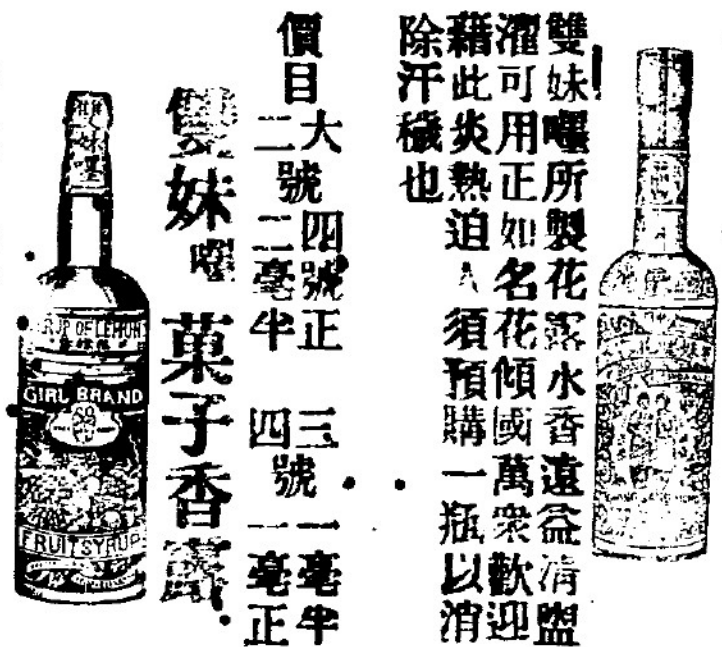 雙妹嚜所製花露水香遠益清盥
濯可用正如名花傾國萬衆歡迎
藉此炎熱迫人須預購一瓶以消
除汗穢也
價目
大號四號正 三號一毫半
二號二毫半 四號一毫正
雙妹嚜菓子香露
雙妹嚜
SYRUP OF LEMON
GIRL BRAND
FRUIT SYRUP